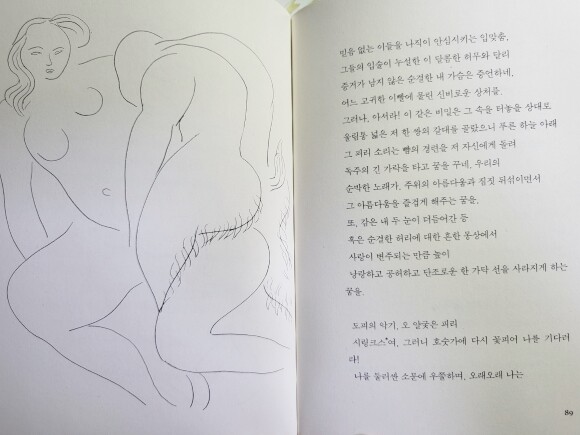 믿음 없는 이들을 나직이 안심시키는 입맞춤,
그들의 입술이 누설한 이 달콤한 허무와 달리
증거가 남지 않은 순결한 내 가슴은 증언하네,
어느 고귀한 이빨에 물린 신비로운 상처를.
그러나, 아서라! 이 같은 비밀은 그 속을 터놓을 상대로
울림통 넓은 저 한 쌍의 갈대를 골랐으니 푸른 하늘 아래
그 피리 소리는 뺨의 경련을 저 자신에게 돌려
독주의 긴 가락을 타고 꿈을 꾸네, 우리의
순박한 노래가, 주위의 아름다움과 짐짓 뒤섞이면서
그 아름다움을 즐겁게 해주는 꿈을,
또, 감은 내 두 눈이 더듬어간 등
혹은 순결한 허리에 대한 흔한 몽상에서
사랑이 변주되는 만큼 높이
낭랑하고 공허하고 단조로운 한 가닥 선을 사라지게 하는
꿈을.
도피의 악기, 오 얄궂은 피리
시링크스*여, 그러나 호숫가에 다시 꽃피어 나를 기다려
라!
나를 둘러싼 소문에 우쭐하며, 오래오래 나는
89